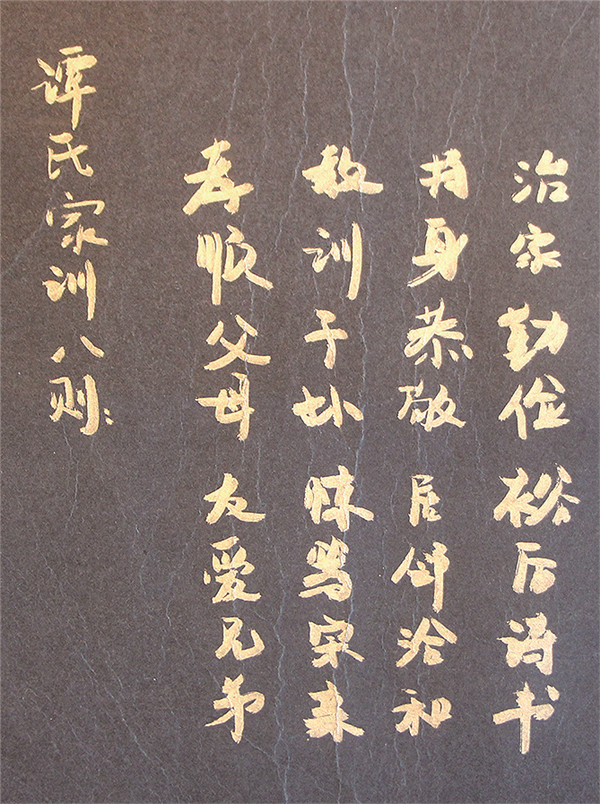 谭氏家训八则:
孝顺父母 友爱兄弟
教训子孙 笃宗亲
身恭敬 居邻洽和
治家勤俭 裕后诗书